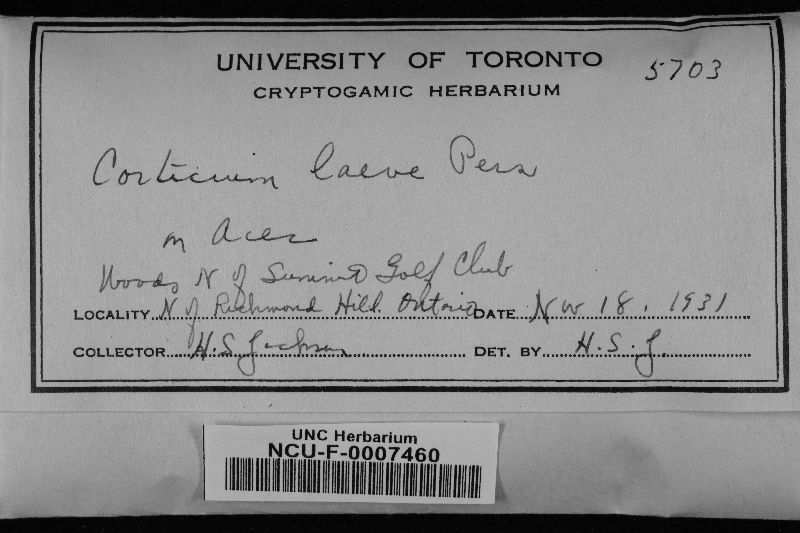 UNIVERSITY OF TORONTO 5703
CRYPTOGAMIC HERBARIUM
Corticium laeve Pers
on Acer
Woods N of Summit Golf Club
LOCALITY N of Richmond Hill. Ontario DATE Nov 18, 1931
COLLECTOR H.S. Jackson DET. BY H.S.J.
UNC Herbarium
NCU-F-0007460